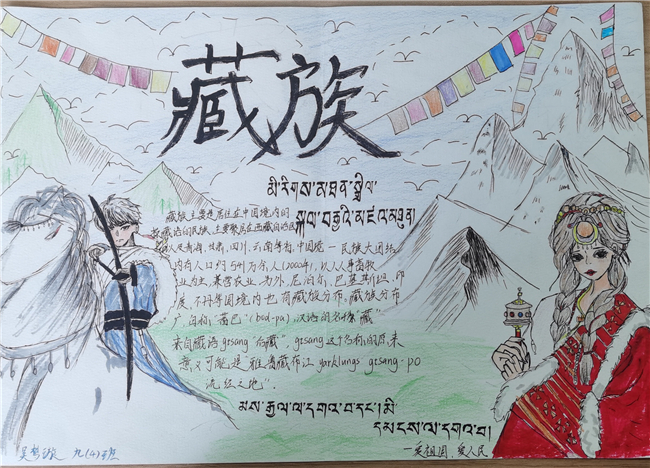 藏族
མི་རིགས་མཐུན་སྒྲིལ་
藏族主要是居住在中国境内的
藏语的民族,主要聚居在西藏自治区
及青海,甘肃,四川,云南等省,中国境
—民族大团结
内有人口约541万余人(2000年),以从事畜牧
业为主,兼营农业.另外,尼泊尔,巴基斯坦,印
度,不丹等国境内也有藏族分布,藏族分布
广,自称"蕃巴"(bod-pa),汉语的名称"藏"
来自藏语gesang"后藏".gesang这个名称的原来
意义可能是"雅鲁藏布江yarklungs gesang-po
流经之地".
མས་རྒྱལ་ལ་དགའ་བ་དང་། མི་
དམངས་ལ་དགའ་བ།
—爱祖国,爱人民
吴 九(4)班